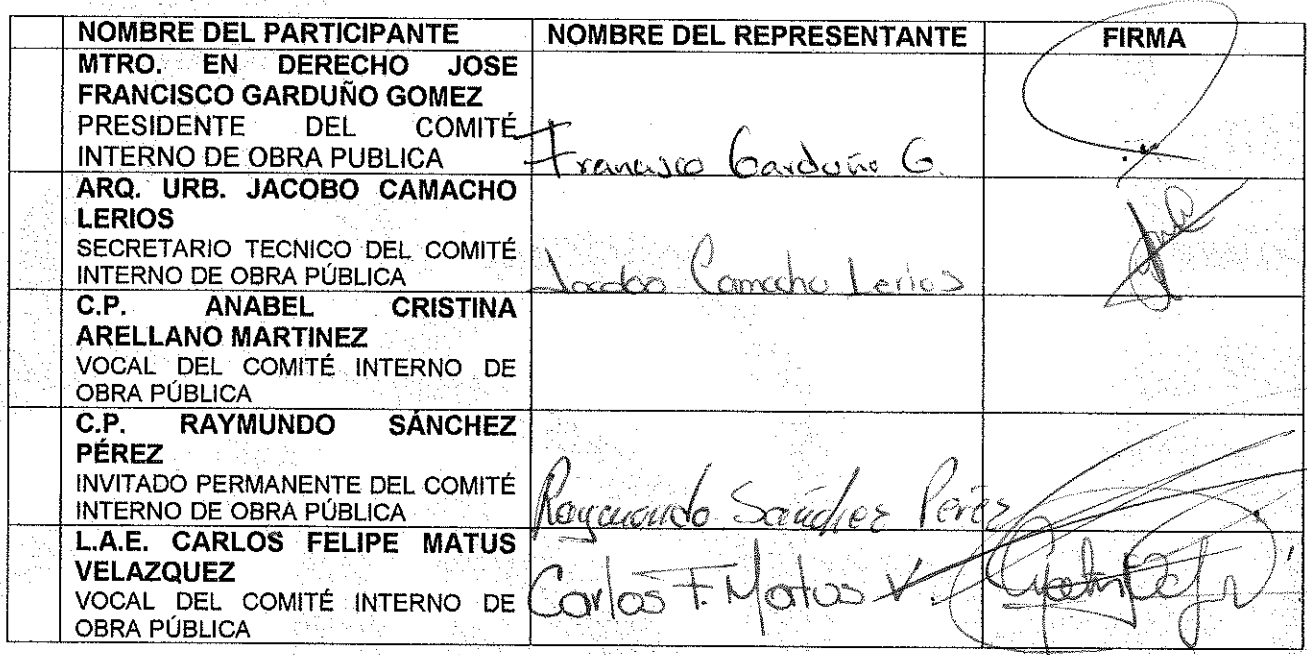 NOMBRE DEL PARTICIPANTE NOMBRE DEL REPRESENTANTE FIRMA
MTRO. EN DERECHO JOSE
FRANCISCO GARDUÑO GOMEZ
PRESIDENTE DEL COMITÉ
INTERNO DE OBRA PUBLICA
Francisco Garduño G.
ARQ. URB. JACOBO CAMACHO
LERIOS
SECRETARIO TECNICO DEL COMITÉ
INTERNO DE OBRA PÚBLICA
Jacobo Camacho Lerios
C.P. ANABEL CRISTINA
ARELLANO MARTINEZ
VOCAL DEL COMITÉ INTERNO DE
OBRA PÚBLICA
C.P. RAYMUNDO SÁNCHEZ
PÉREZ
INVITADO PERMANENTE DEL COMITÉ
INTERNO DE OBRA PÚBLICA
Raymundo Sánchez Pérez
L.A.E. CARLOS FELIPE MATUS
VELAZQUEZ
VOCAL DEL COMITÉ INTERNO DE
OBRA PÚBLICA
Carlos F. Matus V.